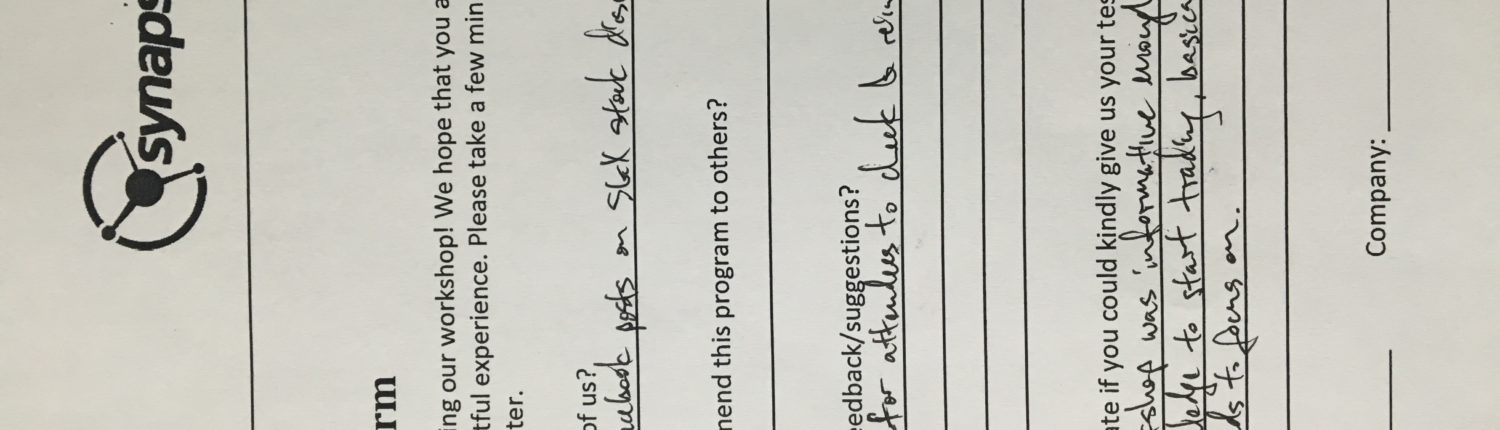 synaps
rm
ing our workshop! We hope that you a
tful experience. Please take a few min
ter.
of us?
acebook posts on Slack stock
mend this program to others?
eedback/suggestions?
for attendees to check
ate if you could kindly give us your tes
shop was informative enough
ledge to start trading, basica
ds to focus on.
Company: